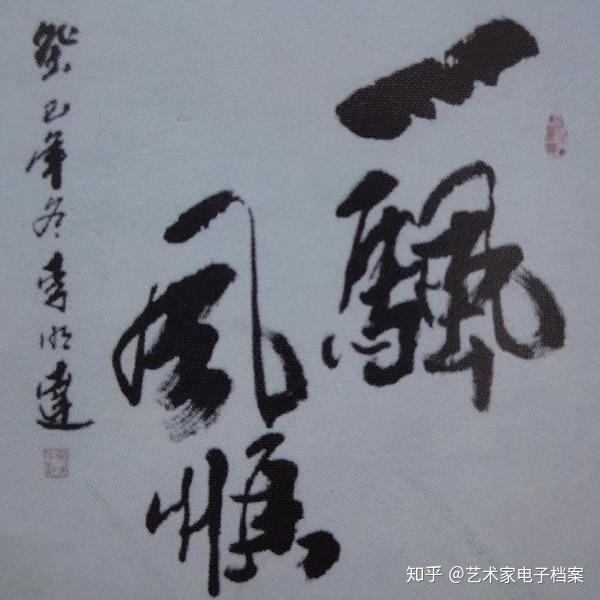 一颿
風順
癸巳年冬李明達
知乎 @艺术家电子档案